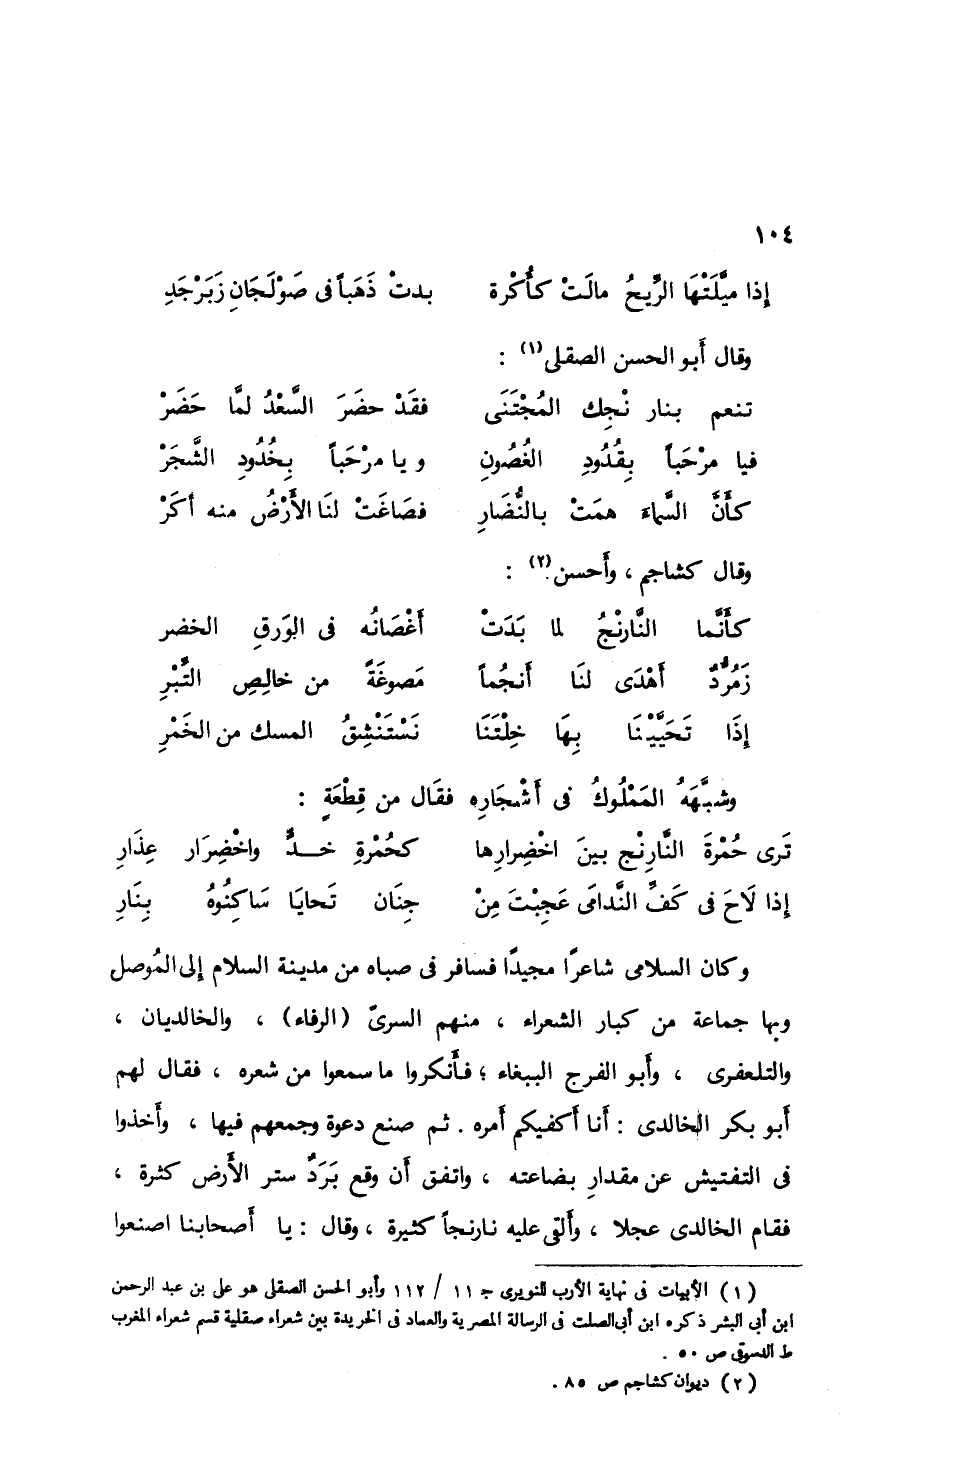 ١٠٤
إذا ميَّلَتْهَا الرِّيحُ مالَتْ كأُكْرة بدتْ ذَهَباً فى صَوْلَجَانِ زَبَرْجَدِ
وقال أَبو الحسن الصقلى(١) :
تنعم بنار نْجِك المُجْتَنَى فقَدْ حضَرَ السَّعْدُ لمَّا حَضَرْ
فيا مرْحَباً بِقُدُودِ الغُصُونِ ويا مرْحَباً بِخُدُودِ الشَّجَرْ
كأَنَّ السَّماءَ همَتْ بالنُّضَارِ فصَاغَتْ لنَا الأَرْضُ منه أكَرْ
وقال كشاجم ، وأَحسن.(٢) :
كأَنَّما النَّارنْجُ لما بَدَتْ أَغْصَانُه فى الوَرقِ الخضر
زَمُرُّدٌ أَهْدَى لنَا أَنجُماً مَصوغَةً من خالِصِ التِّبْرِ
إِذَا تَحَيَّيْنَا بِهَا خِلْتَنَا نَسْتَنْشِقُ المسك من الخَمْرِ
وشبَّهَهُ المَمْلُوكُ فى أَشْجَارِه فقَال من قِطْعَةٍ :
تَرى حُمْرَةَ النَّارِنْج بينَ اخْضِرارِها كحُمْرةِ خـــدٍّ واخْضِرَار عِذَارِ
إذا لَاحَ فى كَفِّ النَّدامَى عَجِبْتَ مِنْ جِنَان تَحايَا سَاكِنُوهُ بِنَارِ
وكان السلامى شاعرًا مجيدًا فسافر فى صباه من مدينة السلام إلى المُوصل
وبها جماعة من كبار الشعراء ، منهم السرىّ (الرفاء) ، والخالديان ،
والتلعفرى ، وأَبو الفرج الببغاء ؛ فأَنكروا ما سمعوا من شعره ، فقال لهم
أَبو بكر الخالدى : أَنا أَكفيكم أَمره . ثم صنع دعوة وجمعهم فيها ، وأَخذوا
فى التفتيش عن مقدار بضاعته ، واتفق أَن وقع بَرَدٌ ستر الأَرض كثرة ،
فقام الخالدى عجلا ، وأَلقى عليه نارنجاً كثيرة ، وقال : يا أَصحابنا اصنعوا
(١) الأبيات فى نهاية الأرب للنويرى ج ١١ / ١١٢ وأبو الحسن الصقلى هو على بن عبد الرحمن
ابن أبى البشر ذكره ابن أبى الصلت فى الرسالة المصرية والعماد فى الخريدة بين شعراء صقلية قسم شعراء المغرب
ط الدسوقى ص ٥٠ .
(٢) ديوان كشاجم ص ٨٥ .